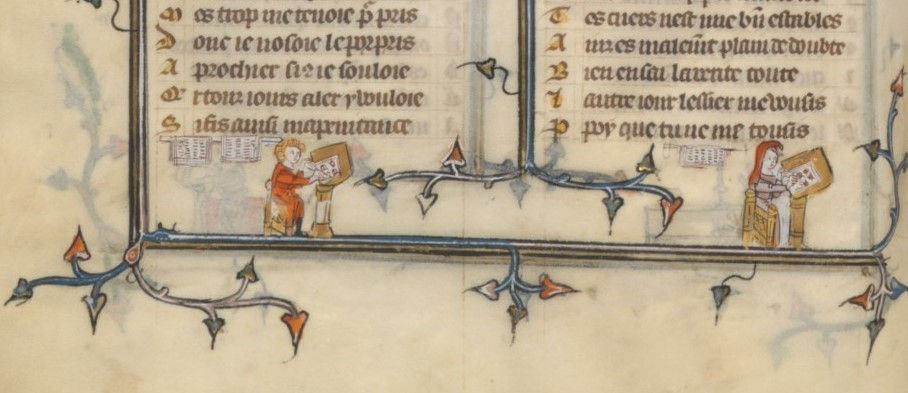 M es trop me tenoie p̃ pris
D onc ie nosoie le porpris
A prochier si 9 ie souloie
E t touz iours aler y vouloie
S i fis ausi ma penitance
T es cuers nest mie bñ estables
A inz es malemt plain de doubte
B ien en sai la verite toute
L autre iour lessier me vousis
P poy que tu ne me tousis